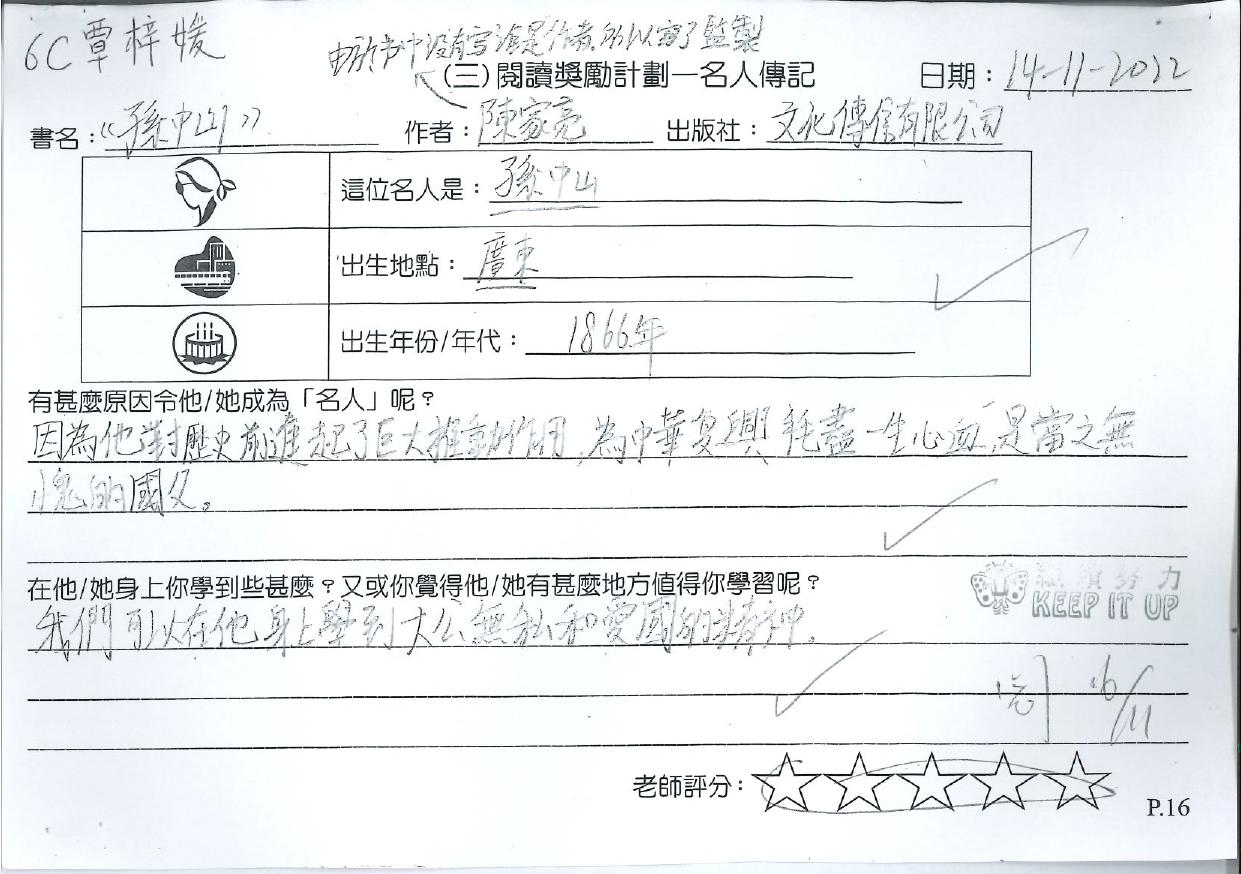 6C 覃梓媛
由於书中没有写谁是作者，所以寫了監製
(三)閱讀獎勵計劃—名人傳記
日期：14-11-2022
書名：《孫中山》 作者：陳家亮 出版社：文化傳信有限公司
這位名人是：孫中山
出生地點：廣東
出生年份/年代：1866年
有甚麼原因令他/她成為「名人」呢？
因為他對歷史前進起了巨大推動作用，為中華复興耗盡一生心血，是當之無
愧的國父。
在他/她身上你學到些甚麼？又或你覺得他/她有甚麼地方值得你學習呢？
我們可以在他身上學到大公無私和愛國的精神。
繼續努力
KEEP IT UP
16/11
老師評分：
P.16